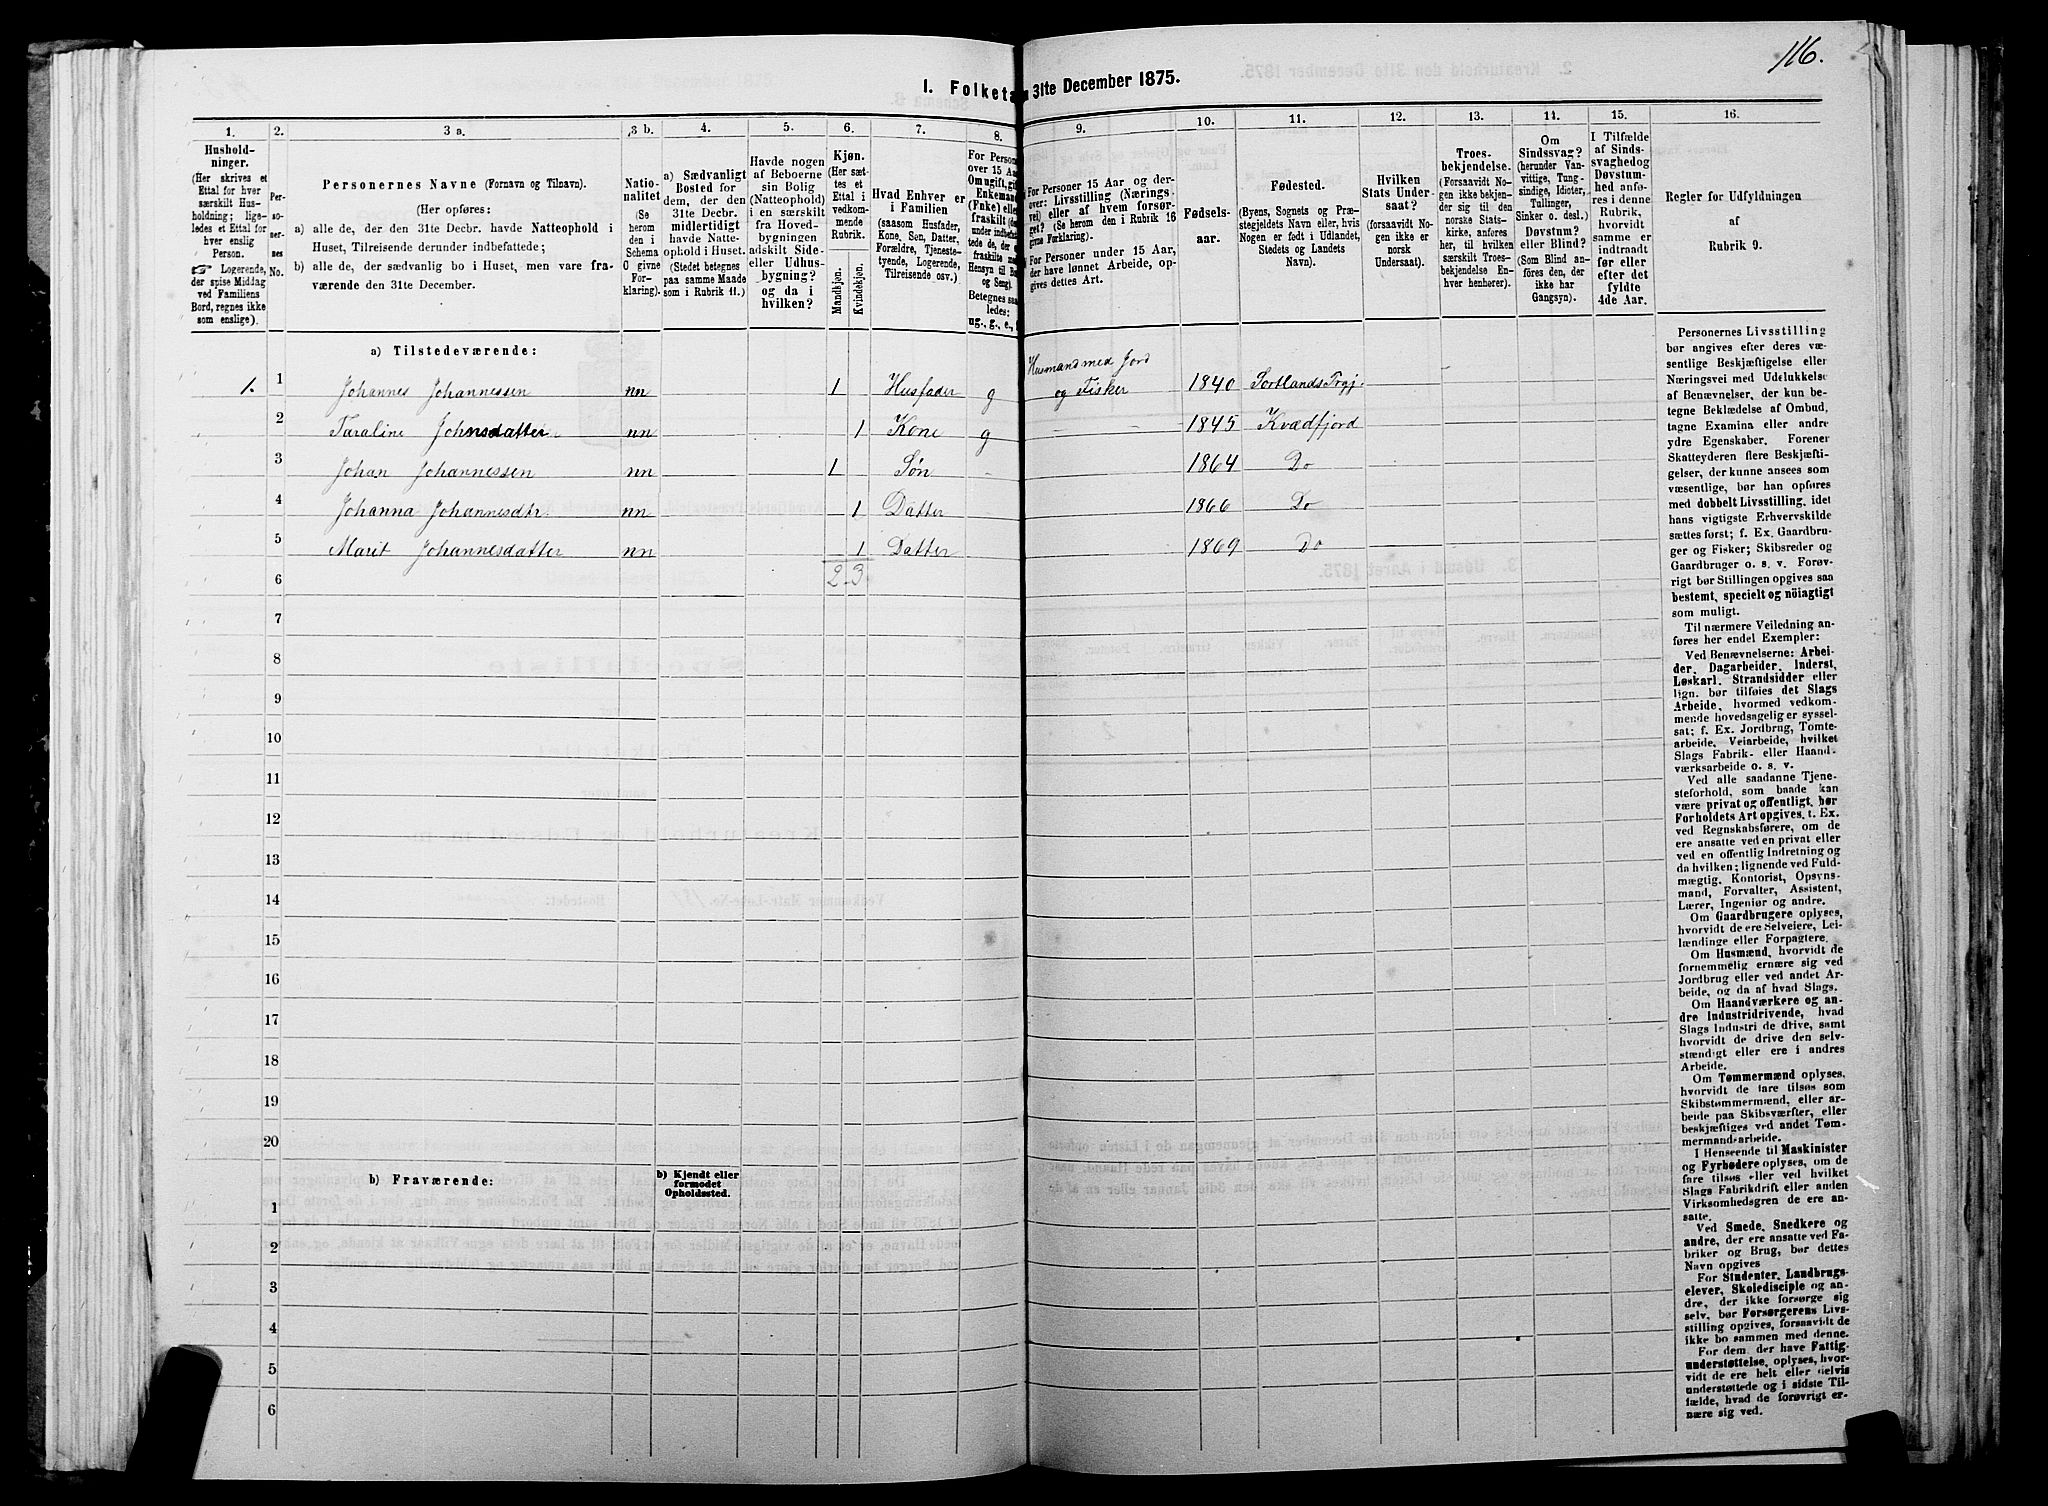 116.
I. Folketa
n 31te December 1875.
1. 2. 3 a. 3 b. 4. 5. 6. 7. 8. 9. 10. 11. 12. 13. 14. 15. 16.
Hushold-
ninger.
(Her skrives et
Ettal for hver
særskilt Hus-
holdning; lige-
ledes et Ettal for
hver enslig
Person.
☞ Logerende,
der spise Middag
ved Familiens
Bord, regnes ikke
som enslige).
Per-
so-
ner-
nes
No.
Personernes Navne (Fornavn og Tilnavn).
(Her opføres:
a) alle de, der den 31te Decbr. havde Natteophold i
Huset, Tilreisende derunder indbefattede;
b) alle de, der sædvanlig bo i Huset, men vare fra-
værende den 31te December.
Natio-
nalitet
(Se
herom
den i
Schema
O givne
For-
klaring).
a) Sædvanligt
Bosted for
dem, der den
31te Decbr.
midlertidigt
havde Natte-
ophold i Huset.
(Stedet betegnes
paa samme Maade
som i Rubrik 11.)
Havde nogen
af Beboerne
sin Bolig
(Natteophold)
i en særskilt
fra Hoved-
bygningen
adskilt Side-
eller Udhus-
bygning?
og da i
hvilken?
Kjøn.
(Her sæt-
tes et
Ettal i
vedkom-
mende
Rubrik.
Mandkjøn.
Kvindekjøn.
Hvad Enhver er
i Familien
(saasom Husfader,
Kone, Søn, Datter,
Forældre, Tjeneste-
tyende, Logerende,
Tilreisende osv.)
For Persone
over 15 Aar
Om ugift, gift
Enkemand
(Fnke) eller
fraskilt
Betegnes saa-
ledes:
ug., g., e.,
For Personer 15 Aar og der-
over: Livsstilling (Nærings-
vei) eller af hvem forsør-
get? (Se herom den i Rubrik 16
givne Forklaring).
For Personer under 15 Aar,
der have lønnet Arbeide, op-
gives dettes Art.
Fødsels-
aar.
Fødested.
(Byens, Sognets og Præ-
stegjeldets Navn eller, hvis
Nogen er født i Udlandet,
Stedets og Landets
Navn).
Hvilken
Stats Under-
saat?
(forsaavidt No-
gen ikke er
norsk
Undersaat).
Troes-
bekjendelse.
(Forsaavidt No-
gen ikke bekjen-
der sig til den
norske Stats-
kirke, anføres
her, til hvilken
særskilt Troes-
bekjendelse En-
hver henhører).
Om
Sindssvag?
(herunder Van-
vittige, Tung-
sindige, Idioter,
Tullinger,
Sinker o. desl.)
Døvstum?
eller Blind?
(Som Blind an-
føres den, der
ikke har
Gangsyn).
I Tilfælde
af Sinds-
svaghed og
Døvstum-
hed anfø-
res i denne
Rubrik,
hvorvidt
samme er
indtraadt
før eller
efter det
fyldte
4de Aar.
Regler for Udfyldningen
af
Rubrik 9.
a) Tilstedeværende:
1. 1 Johannes Johannessen nn 1 Husfader g Husmand med Jord og Fisker 1840 Sortlands Prgj.
2 Taraline Johnsdatter nn 1 Kone g — — 1845 Kvædfjord
3 Johan Johannessen nn 1 Søn - 1864 Do
4 Johanna Johannesdtr. nn 1 Datter 1866 Do
5 Marit Johannesdatter nn 1 Datter 1869 Do
6 2 3
7
8
9
10
11
12
13
14
15
16
17
18
19
20
b) Fraværende:
b) Kjendt eller
formodet
Opholdssted.
1
2
3
4
5
6
Personernes Livsstilling
bør angives efter deres væ-
sentlige Beskjæftigelse eller
Næringsvei med Udelukkelse
af Benævnelser, der kun be-
tegne Beklædelse af Ombud,
tagne Examina eller andre
ydre Egenskaber. Forener
Skatteyderen flere Beskjæfti-
gelser, der kunne ansees som
væsentlige, bør han opføres
med dobbelt Livsstilling, idet
hans vigtigste Erhvervskilde
sættes først; f. Ex. Gaardbru-
ger og Fisker; Skibsreder og
Gaardbruger o. s. v. Forøv-
rigt bør Stillingen opgives saa
bestemt, specielt og nöiagtigt
som muligt.
Til nærmere Veiledning an-
føres her endel Exempler:
Ved Benævnelserne: Arbei-
der, Dagarbeider, Inderst,
Løskarl, Strandsidder eller
lign. bør tilføies det Slags
Arbeide, hvormed vedkom-
mende hovedsagelig er syssel-
sat; f. Ex. Jordbrug, Tomte-
arbeide, Veiarbeide, hvilket
Slags Fabrik- eller Haand-
værksarbeide o. s. v.
Ved alle saadanne Tjene-
steforhold, som baade kan
være privat og offentligt, bør
Forholdets Art opgives, t. Ex.
ved Regnskabsførere, om de
ere ansatte ved en privat eller
ved en offentlig Indretning og
da hvilken; lignende ved Fuld-
mægtig, Kontorist, Opsyns-
mand, Forvalter, Assistent,
Lærer, Ingeniør og andre.
Om Gaardbrugere oplyses,
hvorvidt de ere Selveiere, Lei-
lændinge eller Forpagtere.
Om Husmænd, hvorvidt de
fornemmelig ernære sig ved
Jordbrug eller ved andet Ar-
beide, og da af hvad Slags.
Om Haandværkere og an-
dre Industridrivende, hvad
Slags Industri de drive, samt
hvorvidt de drive den selv-
stændigt eller ere i andres
Arbeide.
Om Tømmermænd oplyses,
hvorvidt de fare tilsøs som
Skibstømmermænd, eller ar-
beide paa Skibsværfter, eller
beskjæftiges ved andet Tøm-
mermandsarbeide.
I Henseende til Maskinister
og Fyrbødere oplyses, om de
fare tilsøs eller ved hvilket
Slags Fabrikdrift eller anden
Virksomhedsgren de ere an-
satte.
Ved Smede, Snedkere og
andre, der ere ansatte ved Fa-
briker og Brug, bør dettes
Navn opgives
For Studenter, Landbrugs-
elever, Skoledisciple og an-
dre, der ikke forsørge sig
selv, bør Forsørgerens Livs-
stilling opgives, forsaavidt de
ikke bo sammen med denne.
For dem, der have Fattig-
understøttelse, oplyses, hvor-
vidt de ere helt eller delvis
understøttede og i sidste Til-
fælde, hvad de forøvrigt er-
nære sig ved.